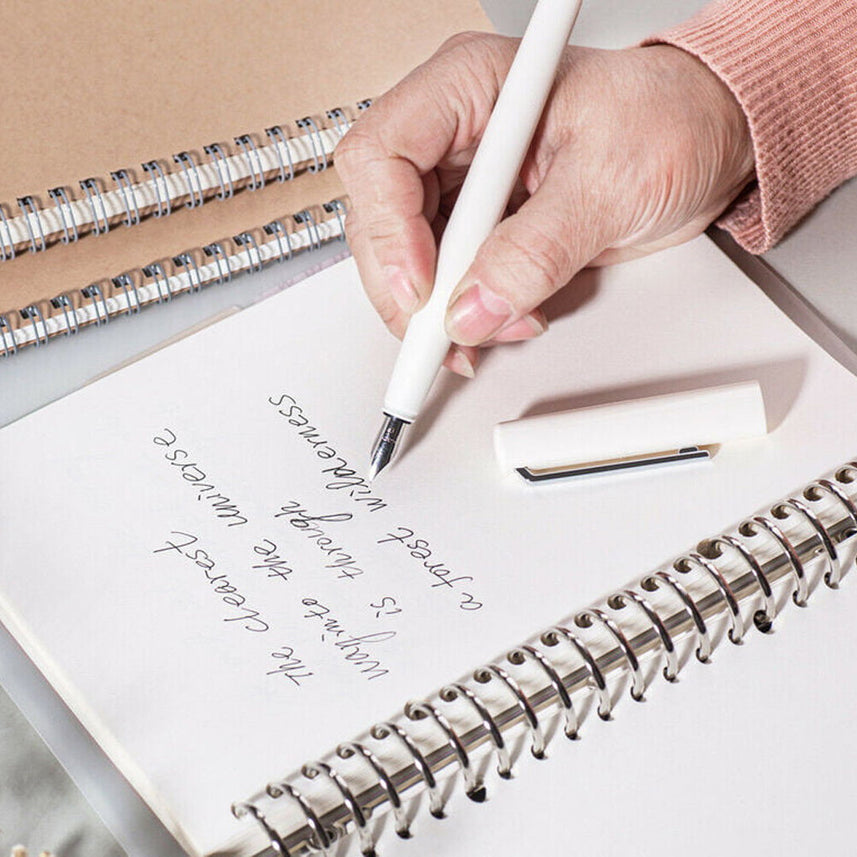 The clearest
wayinto the universe
is through
a forest wilderness